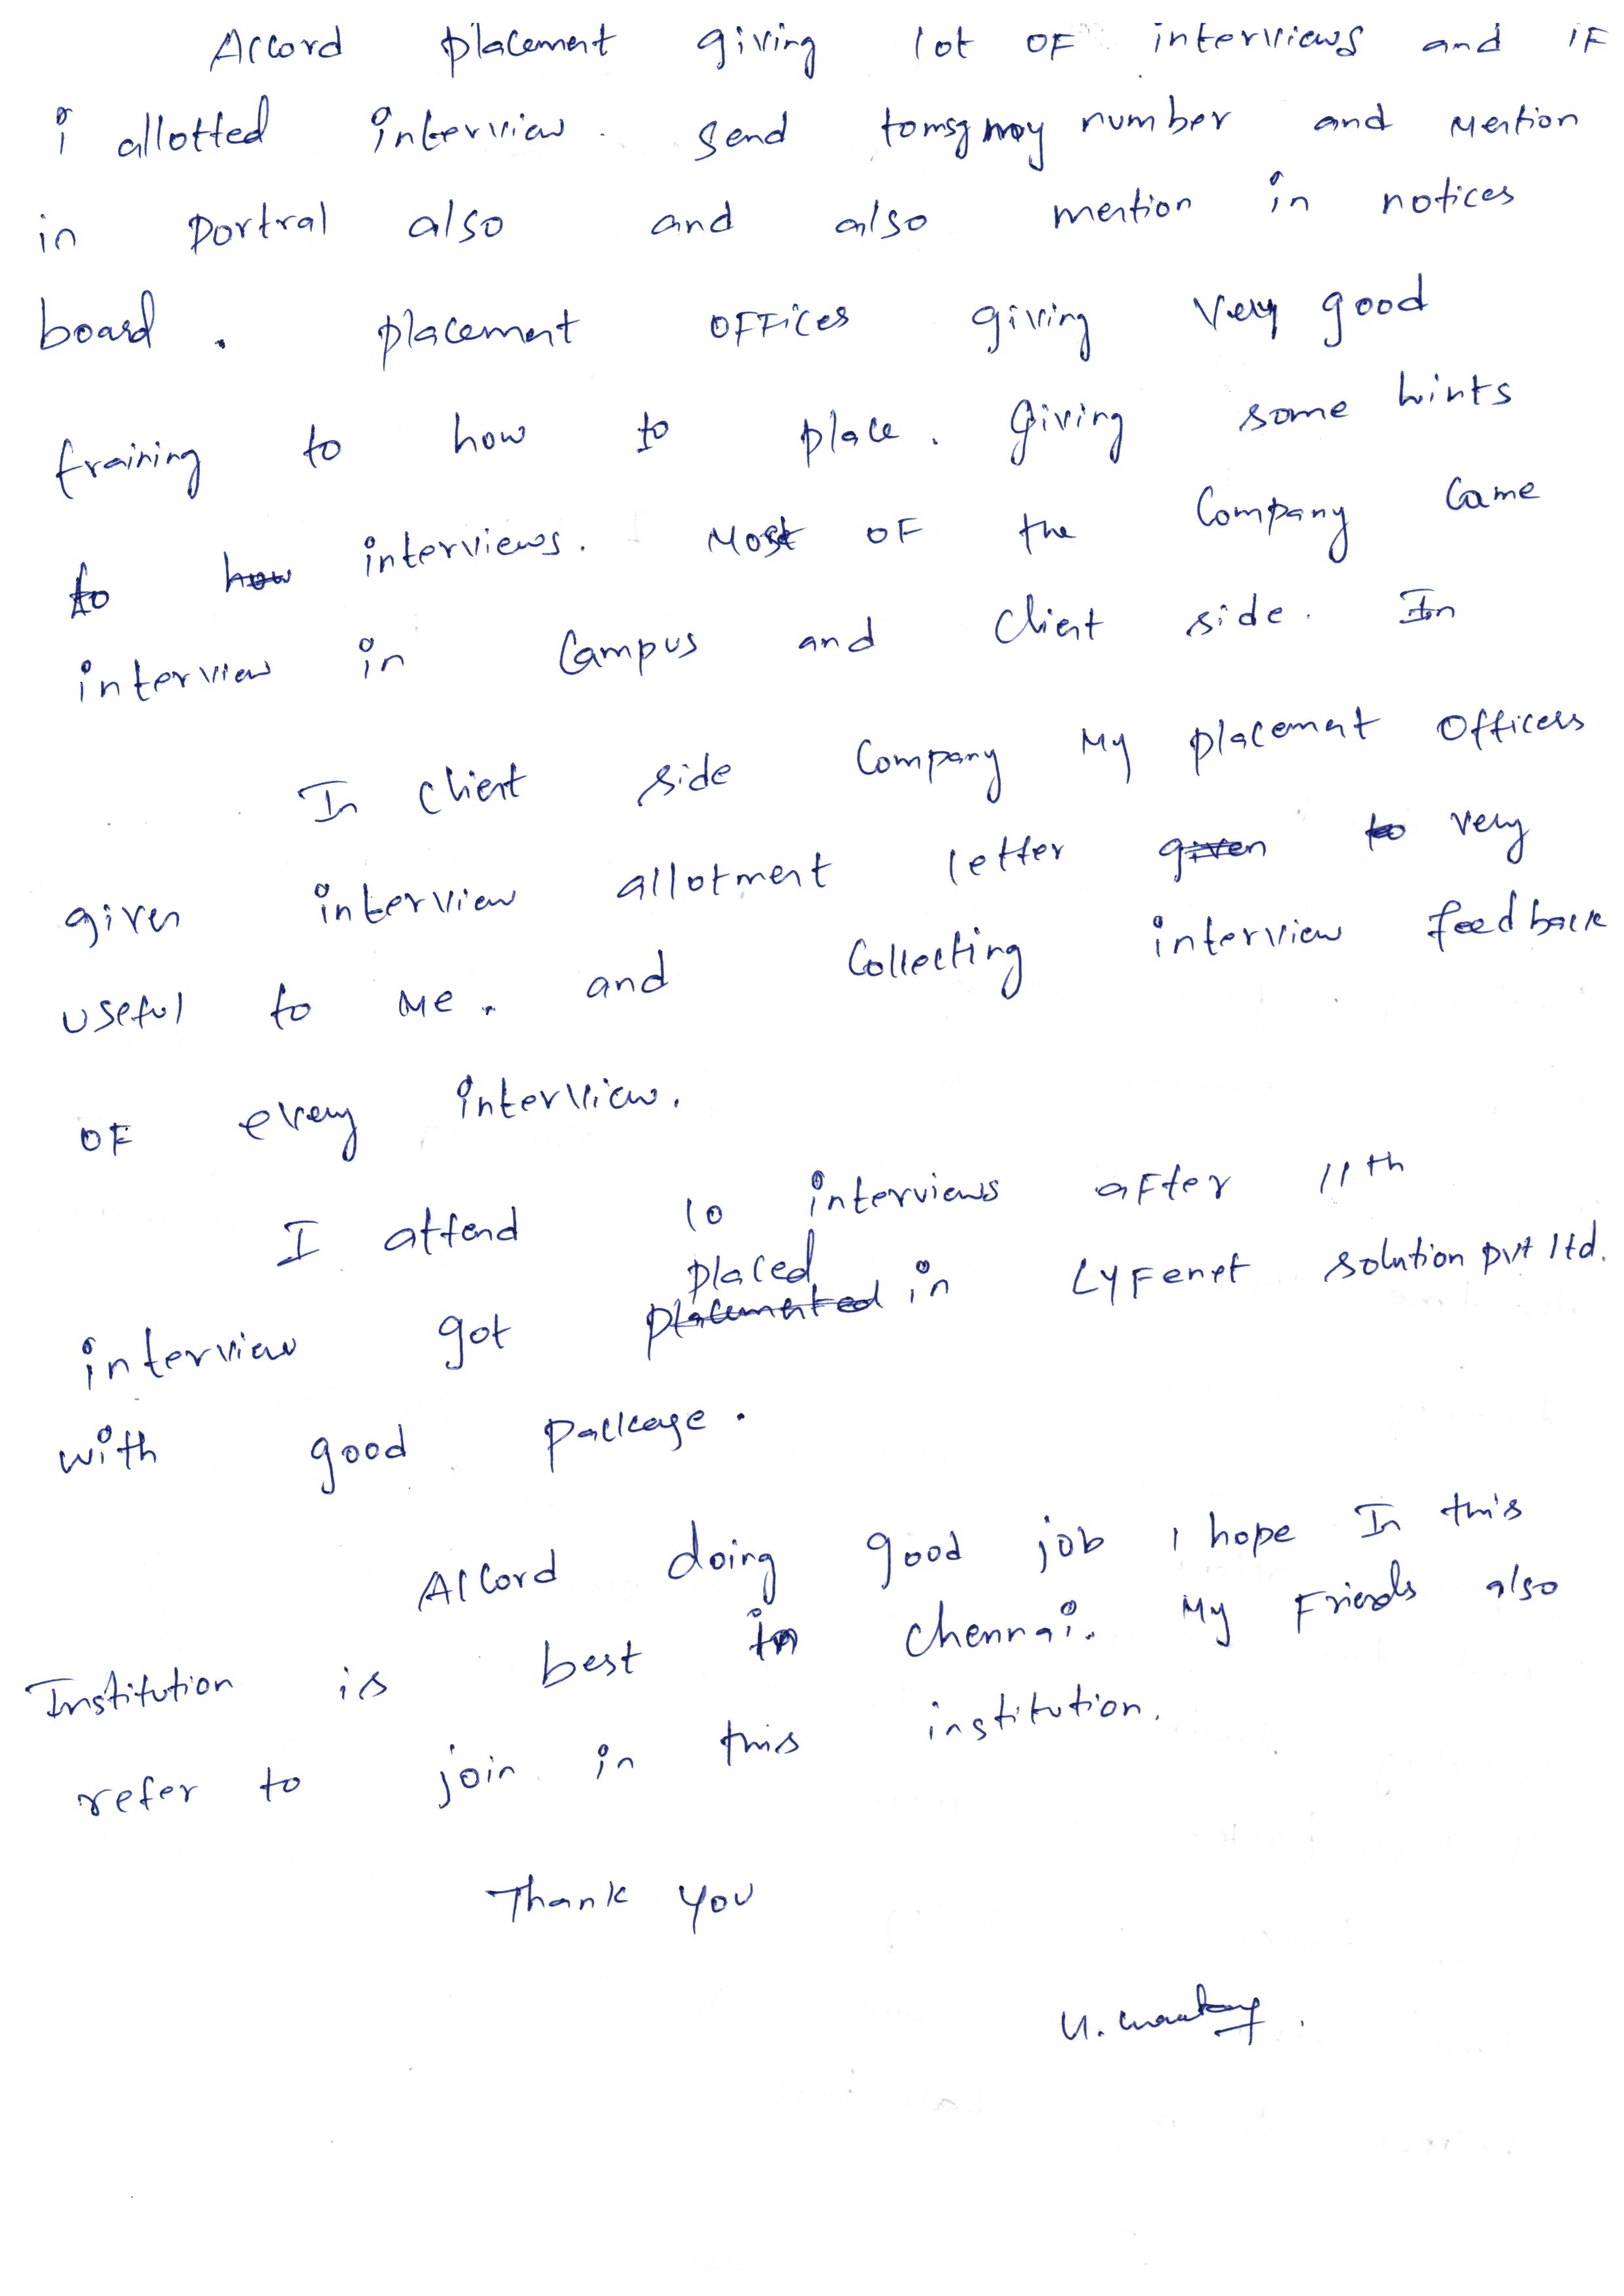 Accord placement giving lot OF interviews and iF
i allotted interview. send tomsg my number and mention
in portral also and also mention in notices
board. placement OFFices giving very good
training to how to place. Giving some hints
to how interviews. Most OF the Company Came
interview in Campus and Client side. In
In Client side Company My placement Officers
given interview allotment letter given to very
useful to Me. and Collecting interview feedback
OF every interview.
I attend 10 interviews aFter 11th
placed
interview got placemented in LYFenet solution pvt ltd.
with good package.
Accord doing good job I hope In this
Institution is best in chennai. My Friends also
refer to join in this institution.
Thank You